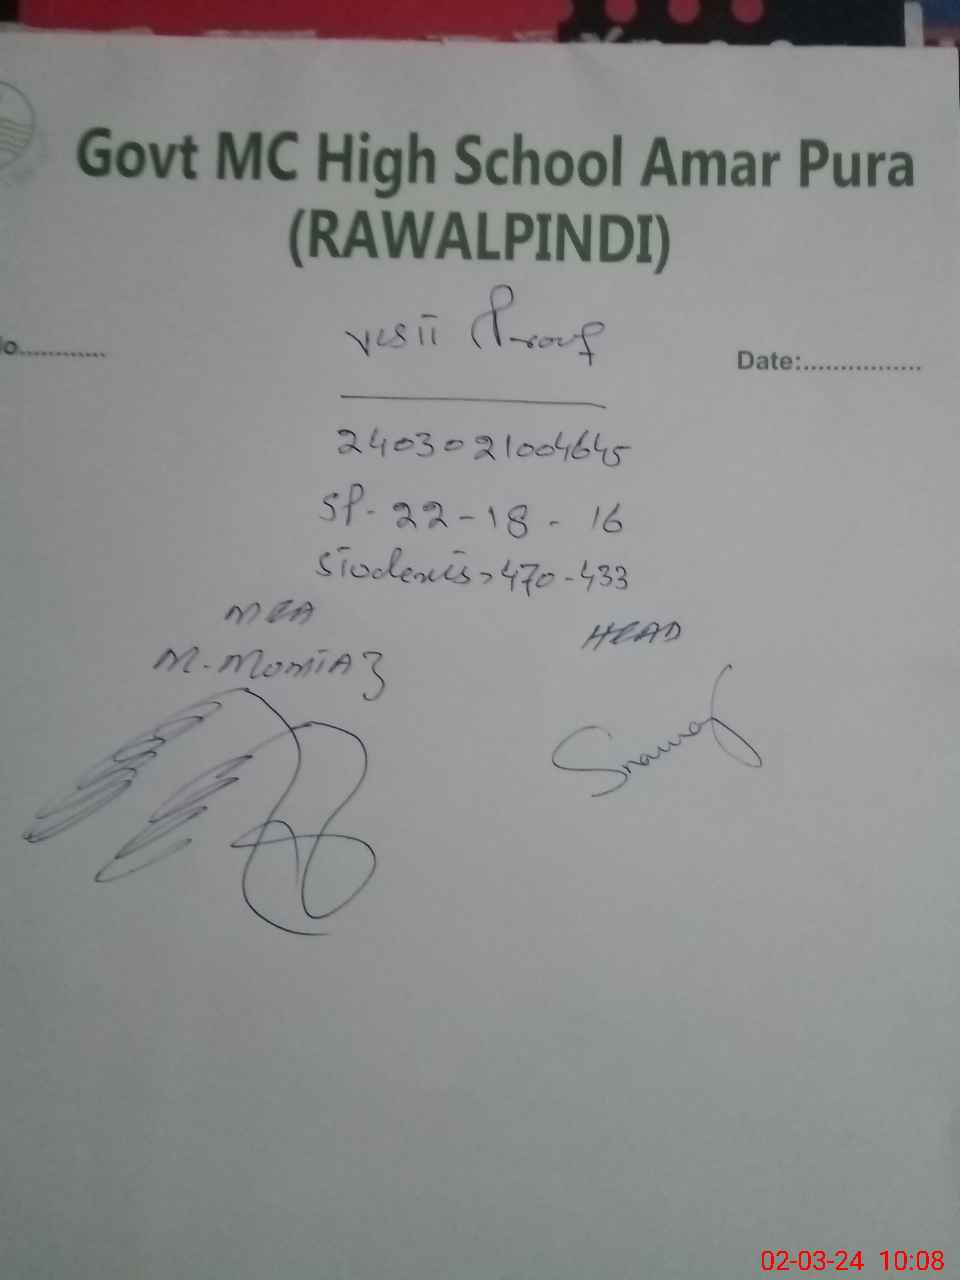 Govt MC High School Amar Pura
(RAWALPINDI)
Visit Proof
o............
Date:................
2403021004645
SP- 22-18-16
Students > 470-433
MEA
HEAD
M. Momtaz
02-03-24 10:08